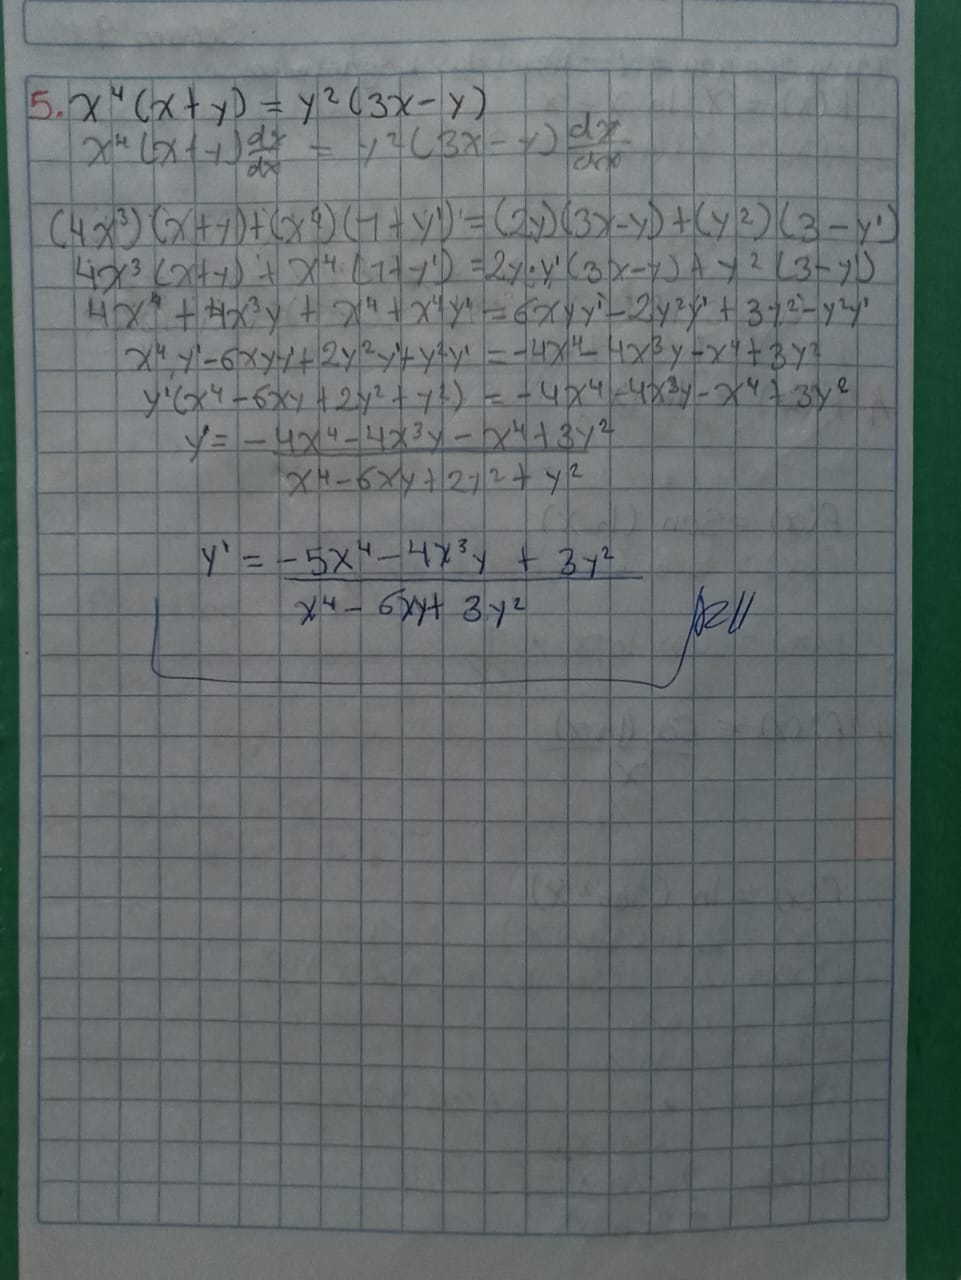 5. x⁴(x+y) = y²(3x-y)
x⁴(x+y) dx/dx = y²(3x-y) dx/dx
(4x³)(x+y)+(x⁴)(1+y') = (2y)(3x-y)+(y²)(3-y')
4x³(x+y) + x⁴(1+y') = 2y·y'(3x-y) + y²(3-y')
4x⁴ + 4x³y + x⁴ + x⁴y' = 6xyy' - 2y²y' + 3y² - y²y'
x⁴y' - 6xyy' + 2y²y' + y²y' = -4x⁴ - 4x³y - x⁴ + 3y²
y'(x⁴ - 6xy + 2y² + y²) = -4x⁴ - 4x³y - x⁴ + 3y²
y' = -4x⁴ - 4x³y - x⁴ + 3y²
x⁴ - 6xy + 2y² + y²
y' = -5x⁴ - 4x³y + 3y²
x⁴ - 6xy + 3y²